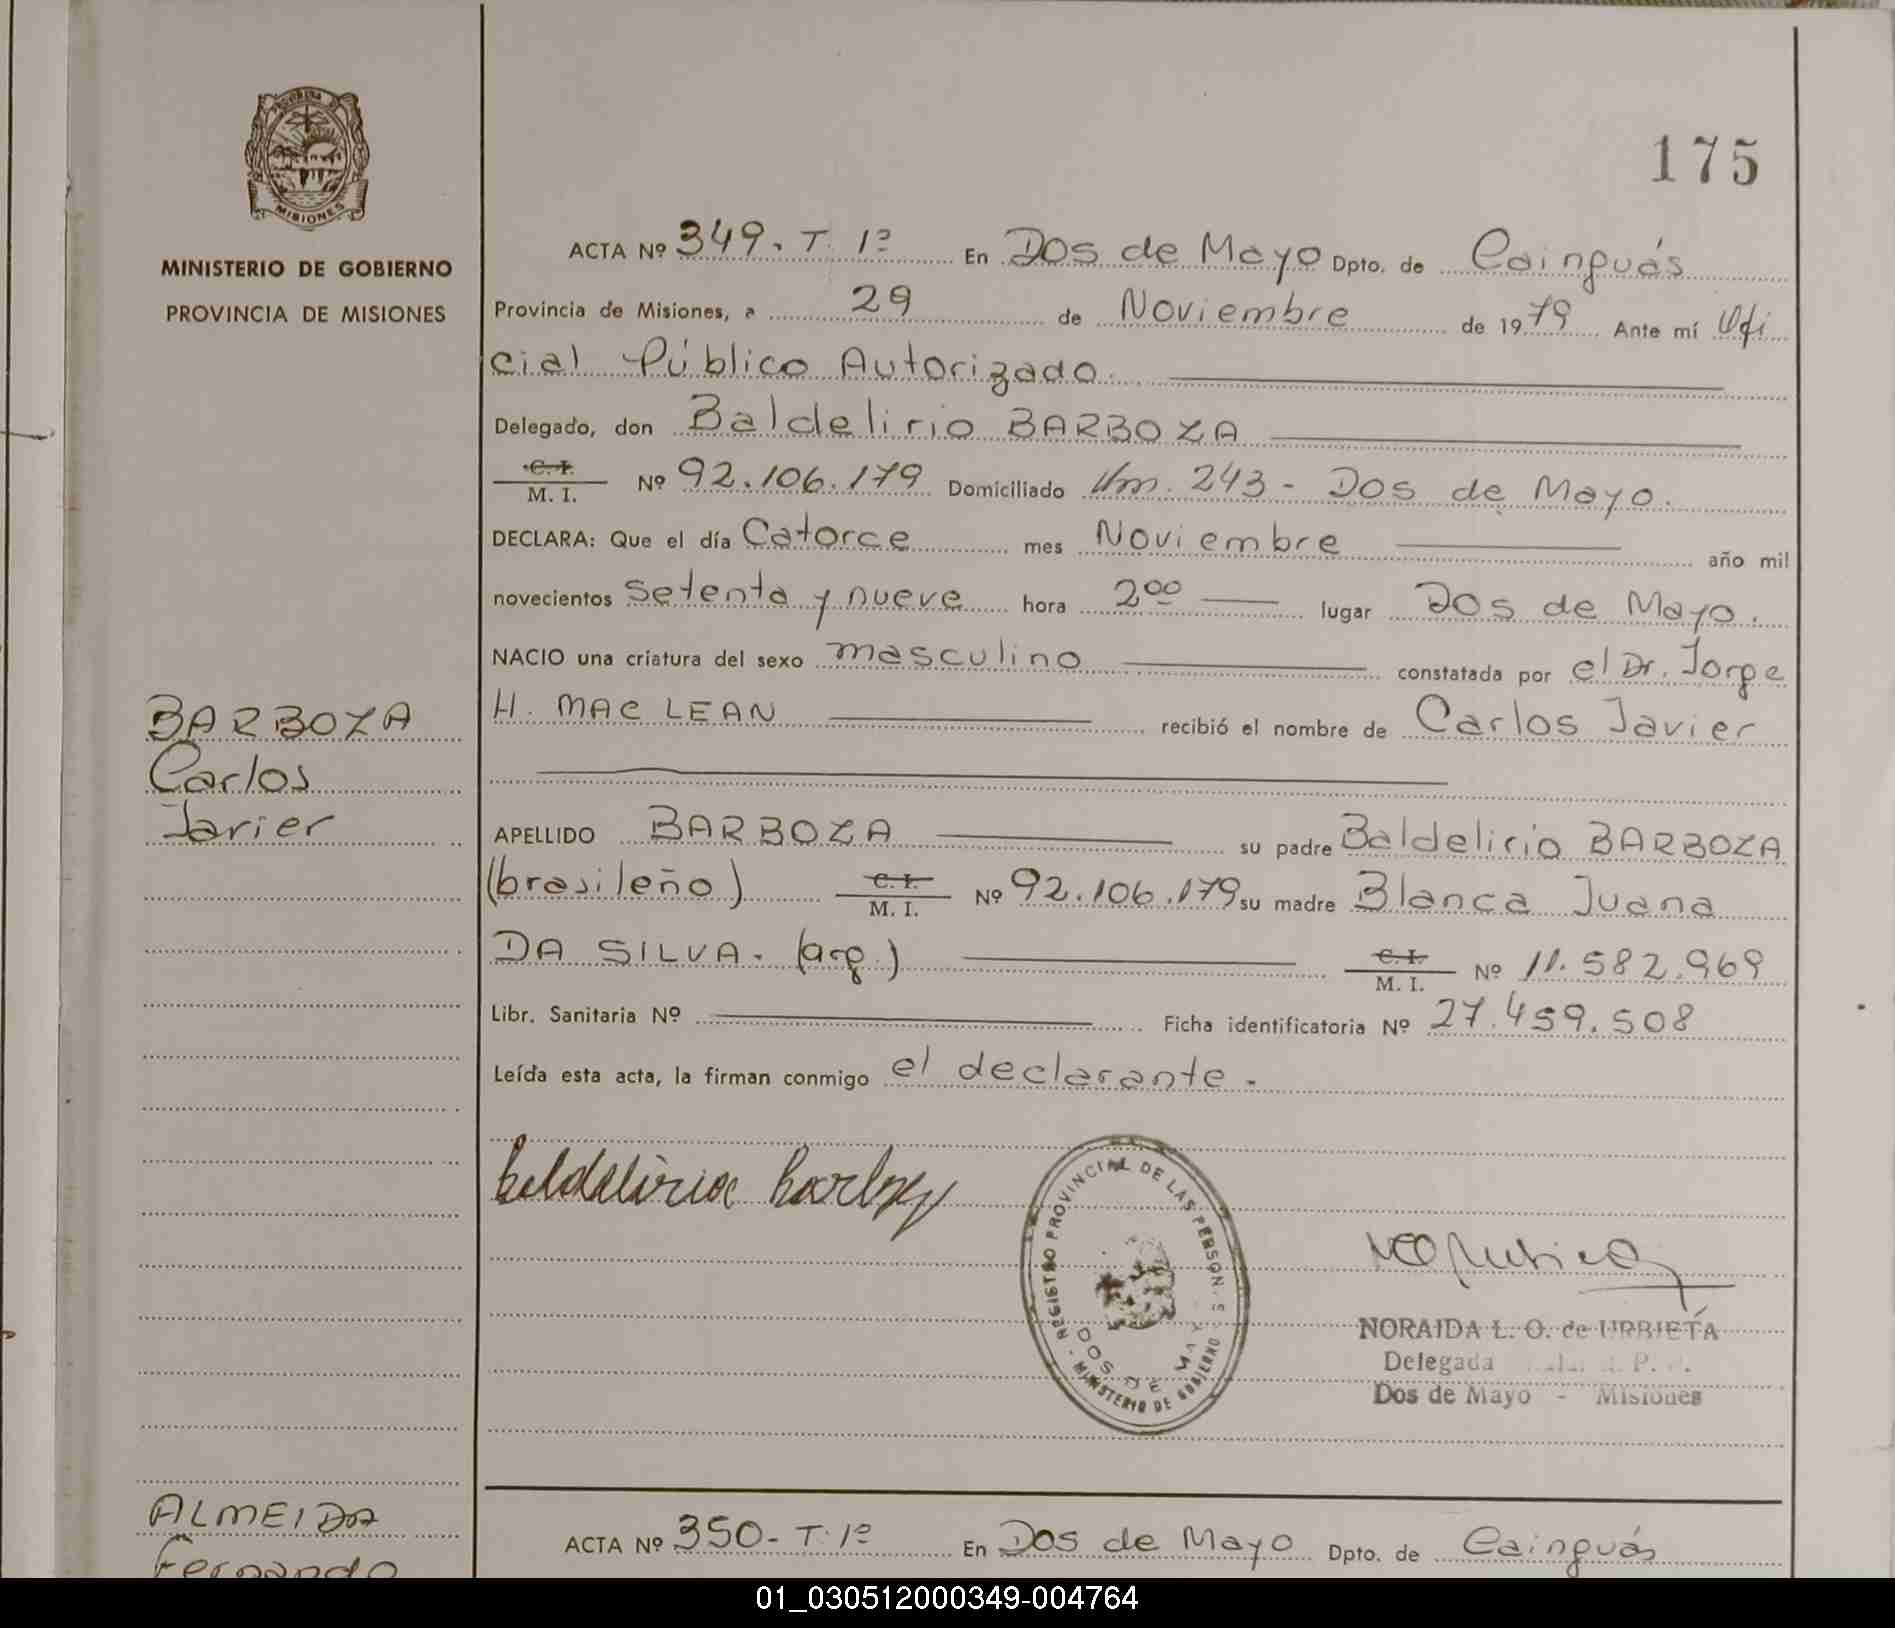 PROVINCIA DE
MISIONES
MINISTERIO DE GOBIERNO
PROVINCIA DE MISIONES
BARBOZA
Carlos
Javier
ALMEIDA
Fernando
175
ACTA Nº 349. T. 1º En Dos de Mayo Dpto. de Cainguás
Provincia de Misiones, a 29 de Noviembre de 1979 Ante mí Ofi
cial Público Autorizado.
Delegado, don Baldelirio BARBOZA
C. I. M. I. Nº 92.106.179 Domiciliado Km. 243 - Dos de Mayo.
DECLARA: Que el día Catorce mes Noviembre año mil
novecientos setenta y nueve hora 2 00 lugar Dos de Mayo.
NACIO una criatura del sexo masculino constatada por el Dr. Jorge
H. MAC LEAN recibió el nombre de Carlos Javier
APELLIDO BARBOZA su padre Baldelirio BARBOZA
(brasileño) C. I. M. I. Nº 92.106.179 su madre Blanca Juana
DA SILVA. (arg.) C. I. M. I. Nº 11.582.969
Libr. Sanitaria Nº Ficha identificatoria Nº 27.459.508
Leída esta acta, la firman conmigo el declarante.
REGISTRO PROVINCIAL DE LAS PERSONAS
DOS DE MAYO
MINISTERIO DE GOBIERNO
NORAIDA L. O. de URBIETA
Delegada
Dos de Mayo - Misiones
ACTA Nº 350 - T. 1º En Dos de Mayo Dpto. de Cainguás
01_030512000349-004764